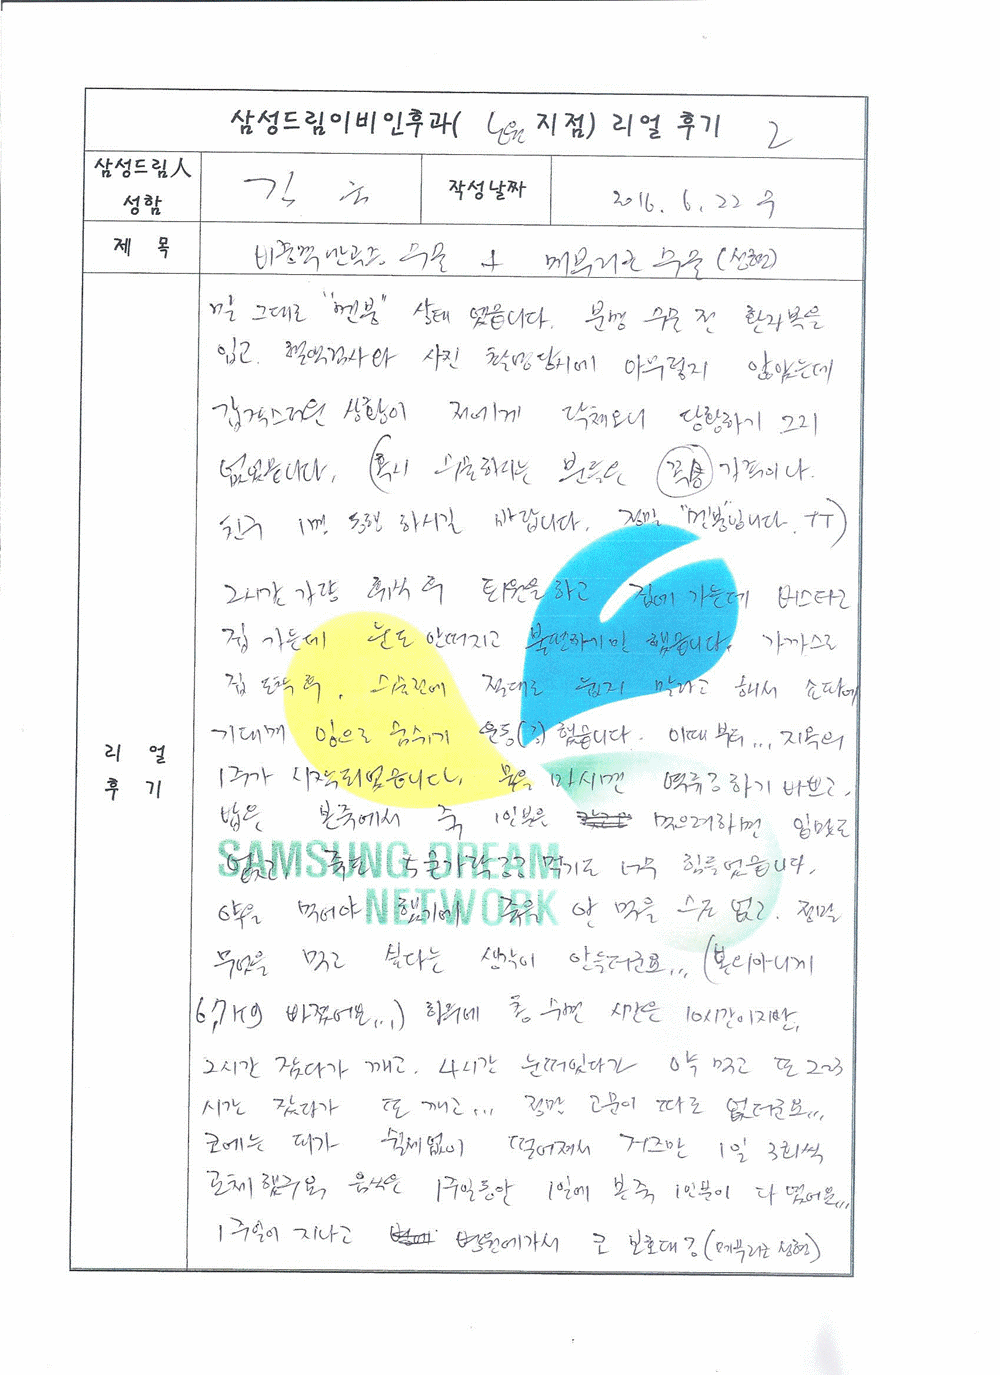 삼성드림이비인후과( 노원 지점) 리얼 후기 2
삼성드림人 성함 김 작성날짜 2016. 6. 22 수
제 목 비중격만곡증 수술 + 메부리코 수술 (성형)
리 얼 후 기
말 그대로 "멘붕" 상태 였습니다. 분명 수술 전 환자복을
입고. 혈액검사와 사진 촬영당시에 아무렇지 않았는데
갑작스러운 상황이 저에게 닥쳐오니 당황하기 그지
없었습니다. (혹시 수술하려는 분들은 꼭좀 가족이나.
친구 1명 동행 하시길 바랍니다. 정말 "멘붕"입니다. ㅜㅜ)
2시간 가량 휴식 후 퇴원을 하고 집에 가는데 버스타고
집 가는데 눈도 안떠지고 불편하기만 했습니다. 가까스로
집 도착 후, 수술전에 절대로 눕지 말라고 해서 쇼파에
기대며 입으로 숨쉬기 운동(?) 했습니다. 이때 부터... 지옥의
1주가 시작되었습니다. 물을 마시면 역류 하기 바쁘고,
밥은 본죽에서 죽 1인분은 먹으려하면 입맛도
없고, 죽도 5숟가락 먹기도 너무 힘들었습니다.
약을 먹어야 했기에 죽을 안 먹을 수도 없고. 정말
무엇을 먹고 싶다는 생각이 안들더군요... (본의아니게
6,7kg 빠졌어요...) 하루에 총 수면 시간은 10시간이지만,
2시간 잤다가 깨고. 4시간 눈떠있다가 약 먹고 또 2~3
시간 잤다가 또 깨고... 정말 고문이 따로 없더군요...
코에는 피가 쉴새없이 떨어져서 거즈만 1일 3회씩
교체 했구요, 음식은 1주일동안 1일에 본죽 1인분이 다 였어요...
1주일이 지나고 병원에가서 코 보호대 (메부리코 성형)
SAMSUNG DREAM
NETWORK